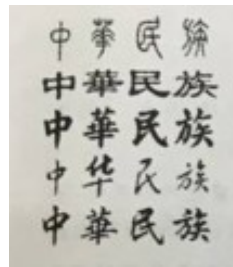 中華民族
中華民族
中華民族
中华民族
中華民族